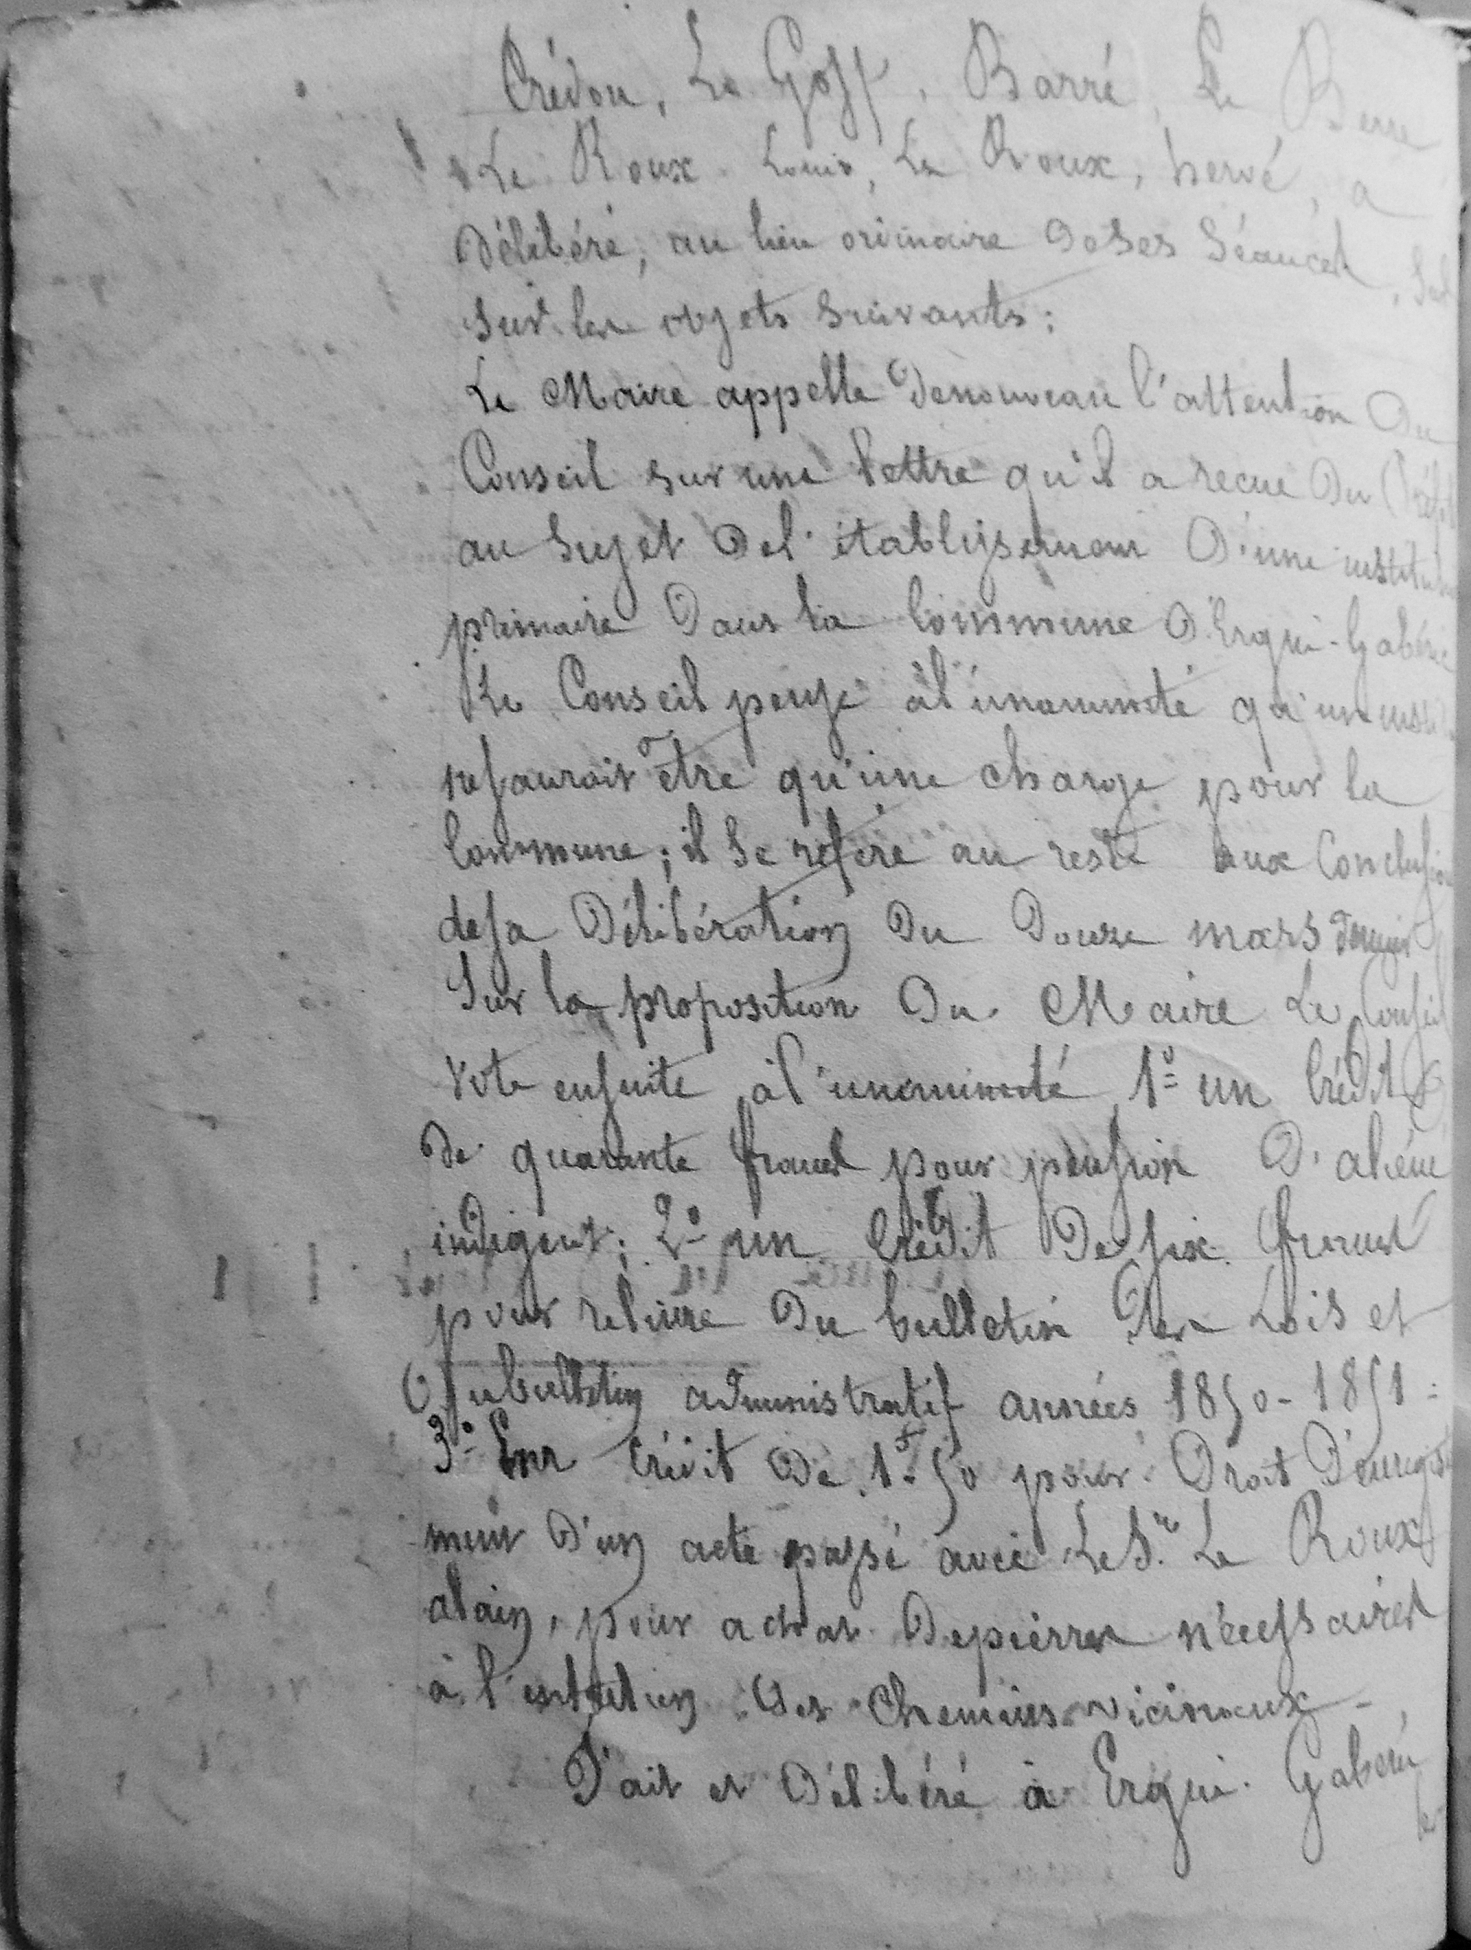 Crédou, Le Goff, Barré, Le Berre
Le Roux Louis, Le Roux, hervé, a
Délibéré, au lieu ordinaire de Ses Séances,
Sur les objets Suivants:
Le Maire appelle Denouveau l'attention Du
Conseil sur une lettre qu'il a recue Du Préfet
au Sujet Del'établissement D'une
primaire Dans la Commune D'Ergué-Gabéric
Le Conseil pense àl'unanimité qu'un
nesauroit être qu'une charge pour la
Commune; il Se réfère au reste aux Conclusions
desa Délibération Du Douze mars dernier
Sur la proposition Du Maire Le Conseil
vote ensuite à l'unanimité 1º un Crédit
De quarante francs pour pension D'aliéné
indigent; 2º un Crédit De six francs
pour reliure Du bulletin Des Lois et
Dubulletin administratif années 1850-1851=
3º Un Crédit De 1f50 pour Droit D'enregistre
ment D'un acte passé avec Le Sr Le Roux
alain, pour achat Depierres nécessaires
à l'entretien Des Chemins vicinaux-
Fait et Délibéré à Ergué-Gabéric